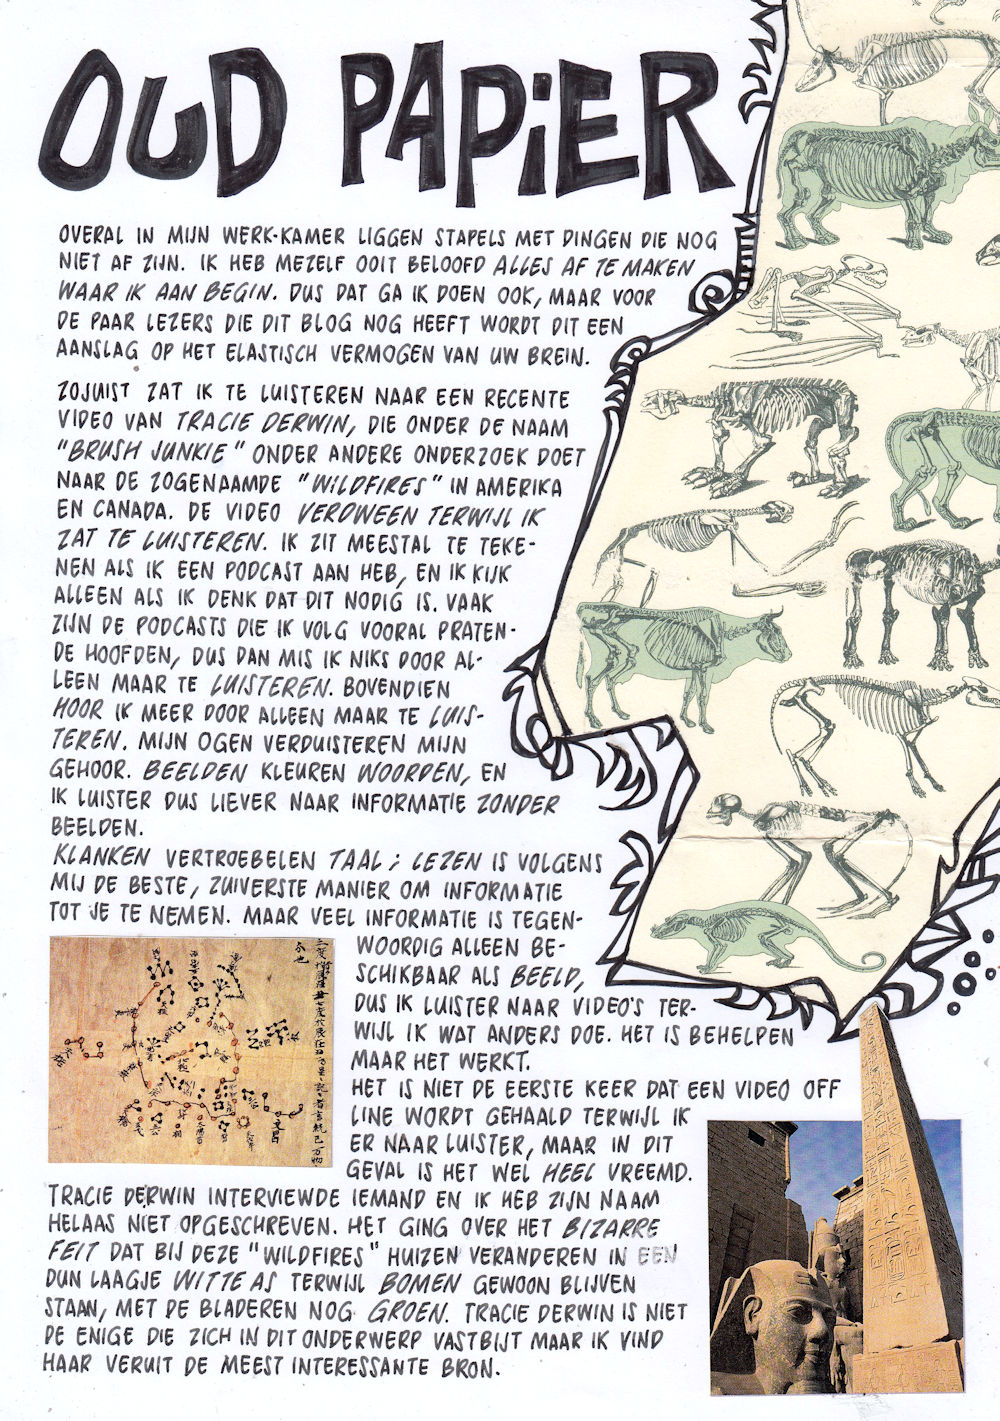 OUD PAPIER
OVERAL IN MIJN WERK-KAMER LIGGEN STAPELS MET DINGEN DIE NOG
NIET AF ZIJN. IK HEB MEZELF OOIT BELOOFD ALLES AF TE MAKEN
WAAR IK AAN BEGIN. DUS DAT GA IK DOEN OOK, MAAR VOOR
DE PAAR LEZERS DIE DIT BLOG NOG HEEFT WORDT DIT EEN
AANSLAG OP HET ELASTISCH VERMOGEN VAN UW BREIN.
ZOJUIST ZAT IK TE LUISTEREN NAAR EEN RECENTE
VIDEO VAN TRACIE DERWIN, DIE ONDER DE NAAM
"BRUSH JUNKIE" ONDER ANDERE ONDERZOEK DOET
NAAR DE ZOGENAAMDE "WILDFIRES" IN AMERIKA
EN CANADA. DE VIDEO VERDWEEN TERWIJL IK
ZAT TE LUISTEREN. IK ZIT MEESTAL TE TEKE-
NEN ALS IK EEN PODCAST AAN HEB, EN IK KIJK
ALLEEN ALS IK DENK DAT DIT NODIG IS. VAAK
ZIJN DE PODCASTS DIE IK VOLG VOORAL PRATEN-
DE HOOFDEN, DUS DAN MIS IK NIKS DOOR AL-
LEEN MAAR TE LUISTEREN. BOVENDIEN
HOOR IK MEER DOOR ALLEEN MAAR TE LUIS-
TEREN. MIJN OGEN VERDUISTEREN MIJN
GEHOOR. BEELDEN KLEUREN WOORDEN, EN
IK LUISTER DUS LIEVER NAAR INFORMATIE ZONDER
BEELDEN.
KLANKEN VERTROEBELEN TAAL; LEZEN IS VOLGENS
MIJ DE BESTE, ZUIVERSTE MANIER OM INFORMATIE
TOT JE TE NEMEN. MAAR VEEL INFORMATIE IS TEGEN-
WOORDIG ALLEEN BE-
SCHIKBAAR ALS BEELD,
DUS IK LUISTER NAAR VIDEO'S TER-
WIJL IK WAT ANDERS DOE. HET IS BEHELPEN
MAAR HET WERKT.
HET IS NIET DE EERSTE KEER DAT EEN VIDEO OFF
LINE WORDT GEHAALD TERWIJL IK
ER NAAR LUISTER, MAAR IN DIT
GEVAL IS HET WEL HEEL VREEMD.
TRACIE DERWIN INTERVIEWDE IEMAND EN IK HEB ZIJN NAAM
HELAAS NIET OPGESCHREVEN. HET GING OVER HET BIZARRE
FEIT DAT BIJ DEZE "WILDFIRES" HUIZEN VERANDEREN IN EEN
DUN LAAGJE WITTE AS TERWIJL BOMEN GEWOON BLIJVEN
STAAN, MET DE BLADEREN NOG GROEN. TRACIE DERWIN IS NIET
DE ENIGE DIE ZICH IN DIT ONDERWERP VASTBIJT MAAR IK VIND
HAAR VERUIT DE MEEST INTERESSANTE BRON.